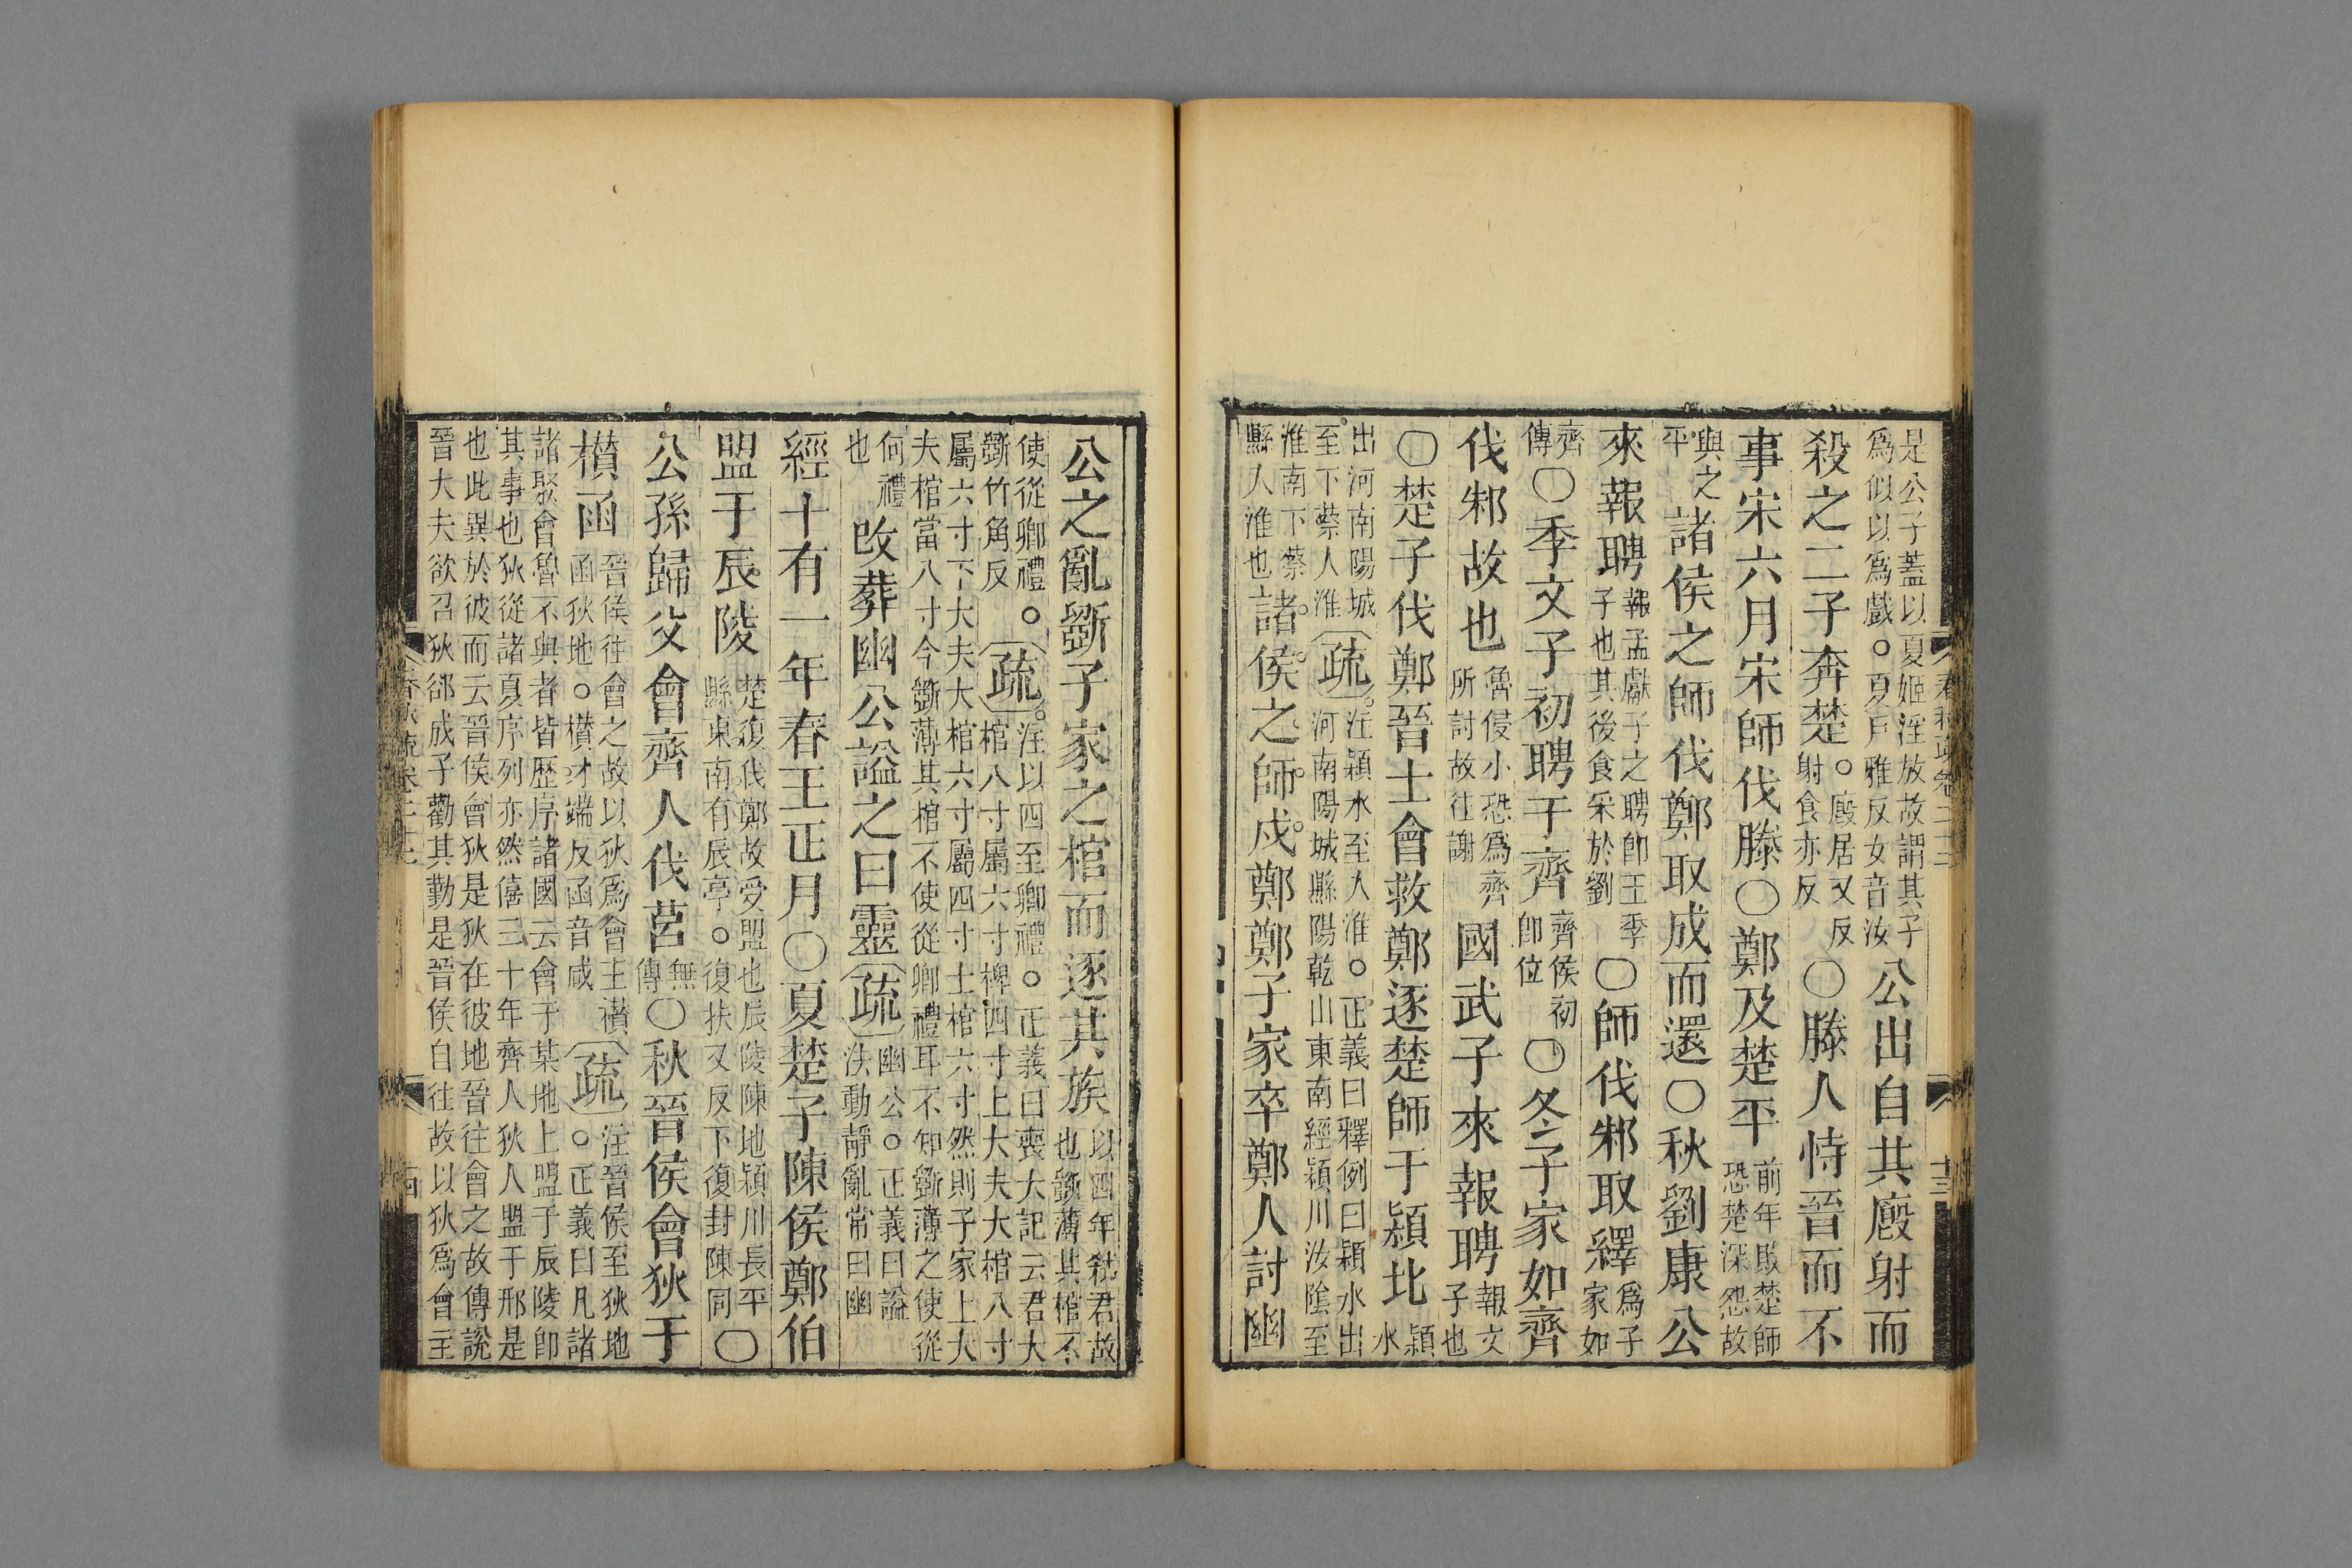 是公子蓋以夏姬淫放故謂其子
爲似以爲戲○夏戶雅反女音汝
公出自其廄射而
殺之二子奔楚○廄居又反
射食亦反
○滕人恃晉而不
事宋六月宋師伐滕○鄭及楚平前年敗楚師
恐楚深怨故
與之
平
諸侯之師伐鄭取成而還○秋劉康公
來報聘報孟獻子之聘卽王季
子也其後食采於劉
○師伐邾取繹爲子
家如
齊
傳
○季文子初聘于齊齊侯初
卽位
○冬子家如齊
伐邾故也魯侵小恐爲齊
所討故往謝
國武子來報聘報文
子也
○楚子伐鄭晉士會救鄭逐楚師于潁北潁
水
出河南陽城
至下蔡入淮
疏注潁水至入淮○正義曰釋例曰潁水出
河南陽城縣陽乾山東南經潁川汝陰至
淮南下蔡
縣入淮也
諸侯之師戍鄭鄭子家卒鄭人討幽
公之亂斲子家之棺而逐其族以四年弒君故
也斲薄其棺不
使從卿禮○
斲竹角反
疏注以四至卿禮○正義曰喪大記云君大
棺八寸屬六寸椑四寸上大夫大棺八寸
屬六寸下大夫大棺六寸屬四寸士棺六寸然則子家上大
夫棺當八寸今斲薄其棺不使從卿禮耳不知斲薄之使從
何禮
也
改葬幽公謚之曰靈疏幽公○正義曰謚
法動靜亂常曰幽
經十有一年春王正月○夏楚子陳侯鄭伯
盟于辰陵楚復伐鄭故受盟也辰陵陳地潁川長平
縣東南有辰亭○復扶又反下復封陳同
○
公孫歸父會齊人伐莒無
傳
○秋晉侯會狄于
欑函晉侯往會之故以狄爲會主欑
函狄地○欑才端反函音咸
疏注晉侯至狄地
○正義曰凡諸
諸聚會魯不與者皆歷序諸國云會于某地上盟于辰陵卽
其事也狄從諸夏序列亦然僖三十年齊人狄人盟于邢是
也此異於彼而云晉侯會狄是狄在彼地晉往會之故傳說
晉大夫欲召狄郤成子勸其勤是晉侯自往故以狄爲會主